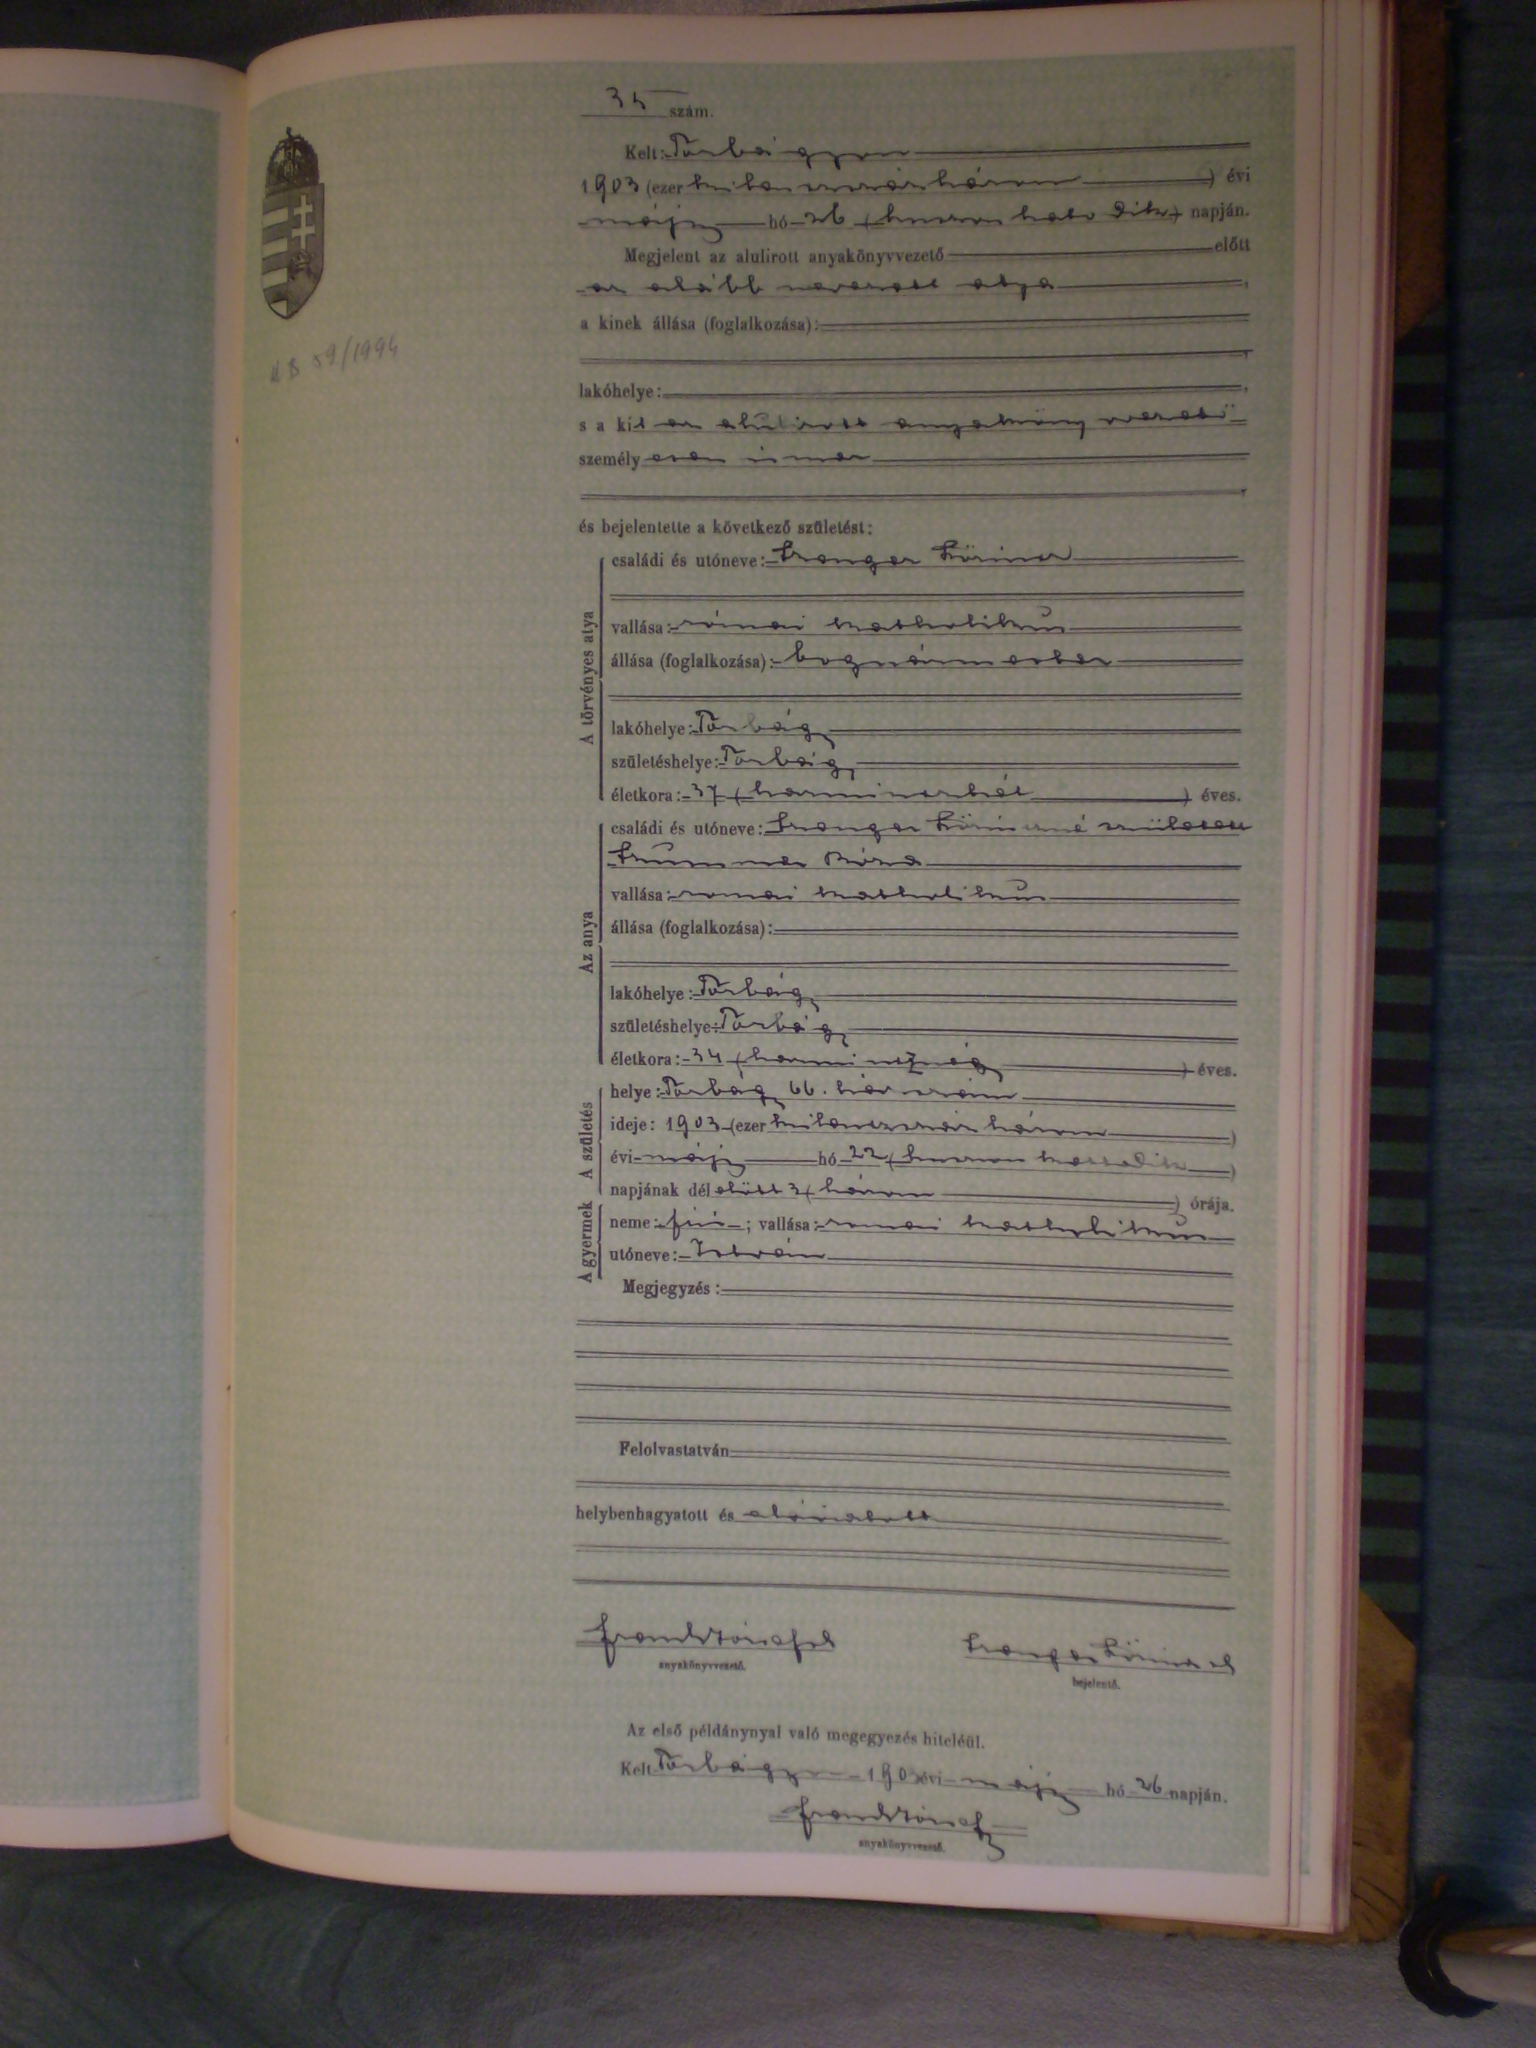 35 szám.
Kelt: Torbágyon
1903 (ezer kilenczszázhárom) évi
máju hó 26 (huszonhatodik) napján.
Megjelent az alulirott anyakönyvvezető előtt
az alább nevezett atya,
a kinek állása (foglalkozása):
lakóhelye:
s a kit az alulirott anyakönyvvezető
személyesen ismer
és bejelentette a következő születést:
A törvényes atya
családi és utóneve:
vallása: római katholikus
állása (foglalkozása): bognármester
lakóhelye: Torbágy
születéshelye: Torbágy
életkora: 37 (harminczhét) éves.
Az anya
családi és utóneve: született
vallása: romai katholikus
állása (foglalkozása):
lakóhelye: Torbágy
születéshelye: Torbágy
életkora: 34 (harmincznégy) éves.
A születés
helye: Torbágy 66. házszám
ideje: 1903 (ezer kilenczszázhárom)
évi máju hó 22 (huszon kettedik)
napjának délelőtt 3 (három) órája.
A gyermek
neme: fiú; vallása: romai katholikus
utóneve: István
Megjegyzés:
Felolvastatván
helybenhagyatott és aláiratott
anyakönyvvezető.
bejelentő.
Az első példánynyal való megegyezés hiteléül.
Kelt Torbágyon 1903 évi máju hó 26 napján.
anyakönyvvezető.
59/1994